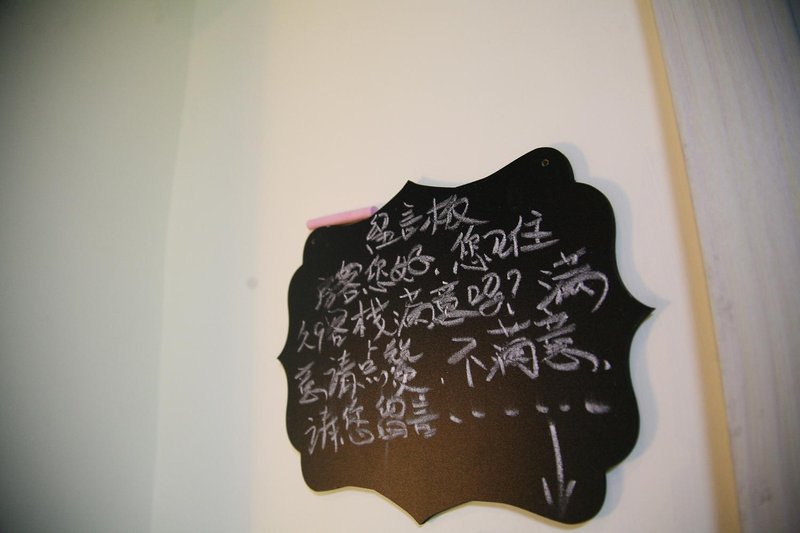 留言板
房客您好,您入住
久9客栈满意吗?满
意请点赞,不满意,
请您留言......